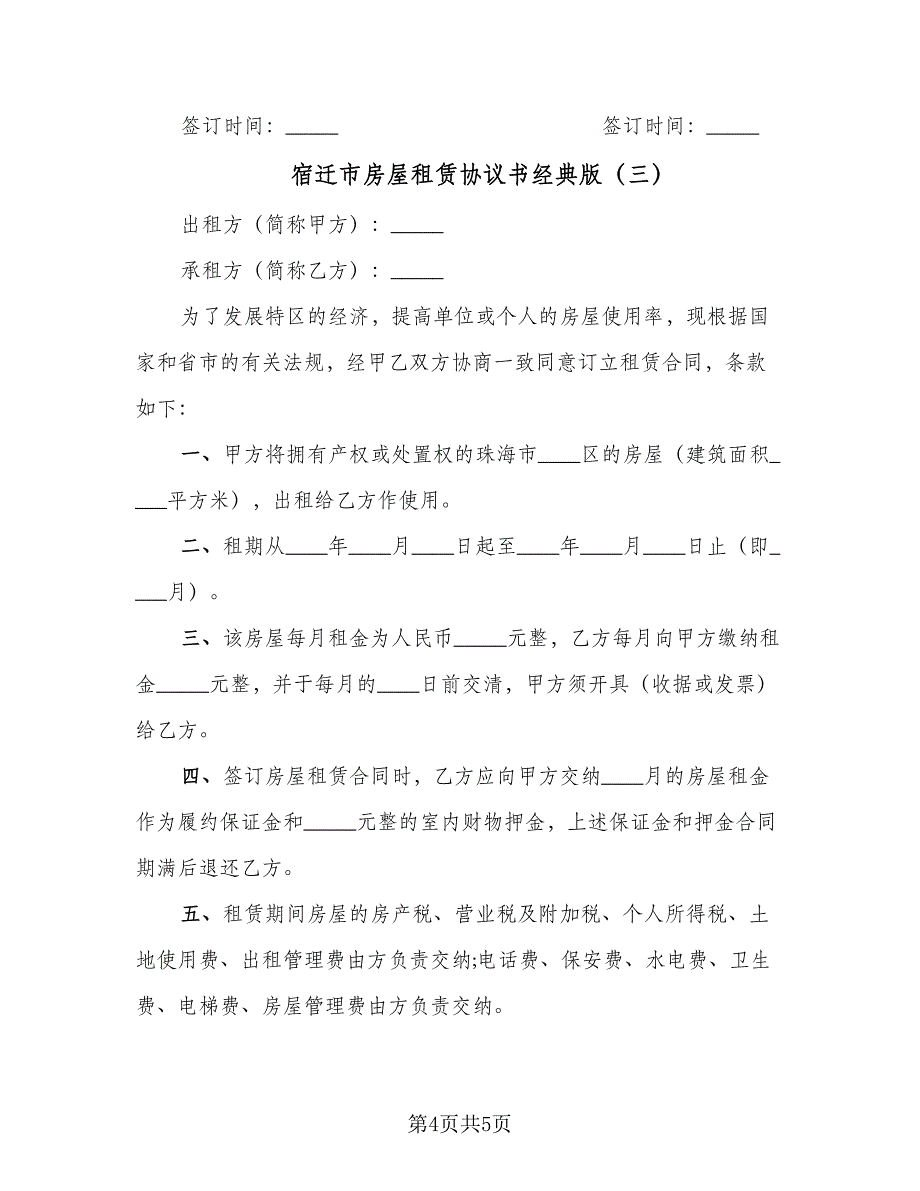 签订时间：_____ 签订时间：_____
宿迁市房屋租赁协议书经典版（三）
出租方（简称甲方）：_____
承租方（简称乙方）：_____
为了发展特区的经济，提高单位或个人的房屋使用率，现根据国
家和省市的有关法规，经甲乙双方协商一致同意订立租赁合同，条款
如下：
一、甲方将拥有产权或处置权的珠海市____区的房屋（建筑面积_
___平方米），出租给乙方作使用。
二、租期从____年____月____日起至____年____月____日止（即_
___月）。
三、该房屋每月租金为人民币_____元整，乙方每月向甲方缴纳租
金_____元整，并于每月的____日前交清，甲方须开具（收据或发票）
给乙方。
四、签订房屋租赁合同时，乙方应向甲方交纳____月的房屋租金
作为履约保证金和_____元整的室内财物押金，上述保证金和押金合同
期满后退还乙方。
五、租赁期间房屋的房产税、营业税及附加税、个人所得税、土
地使用费、出租管理费由方负责交纳;电话费、保安费、水电费、卫生
费、电梯费、房屋管理费由方负责交纳。
第4页共5页